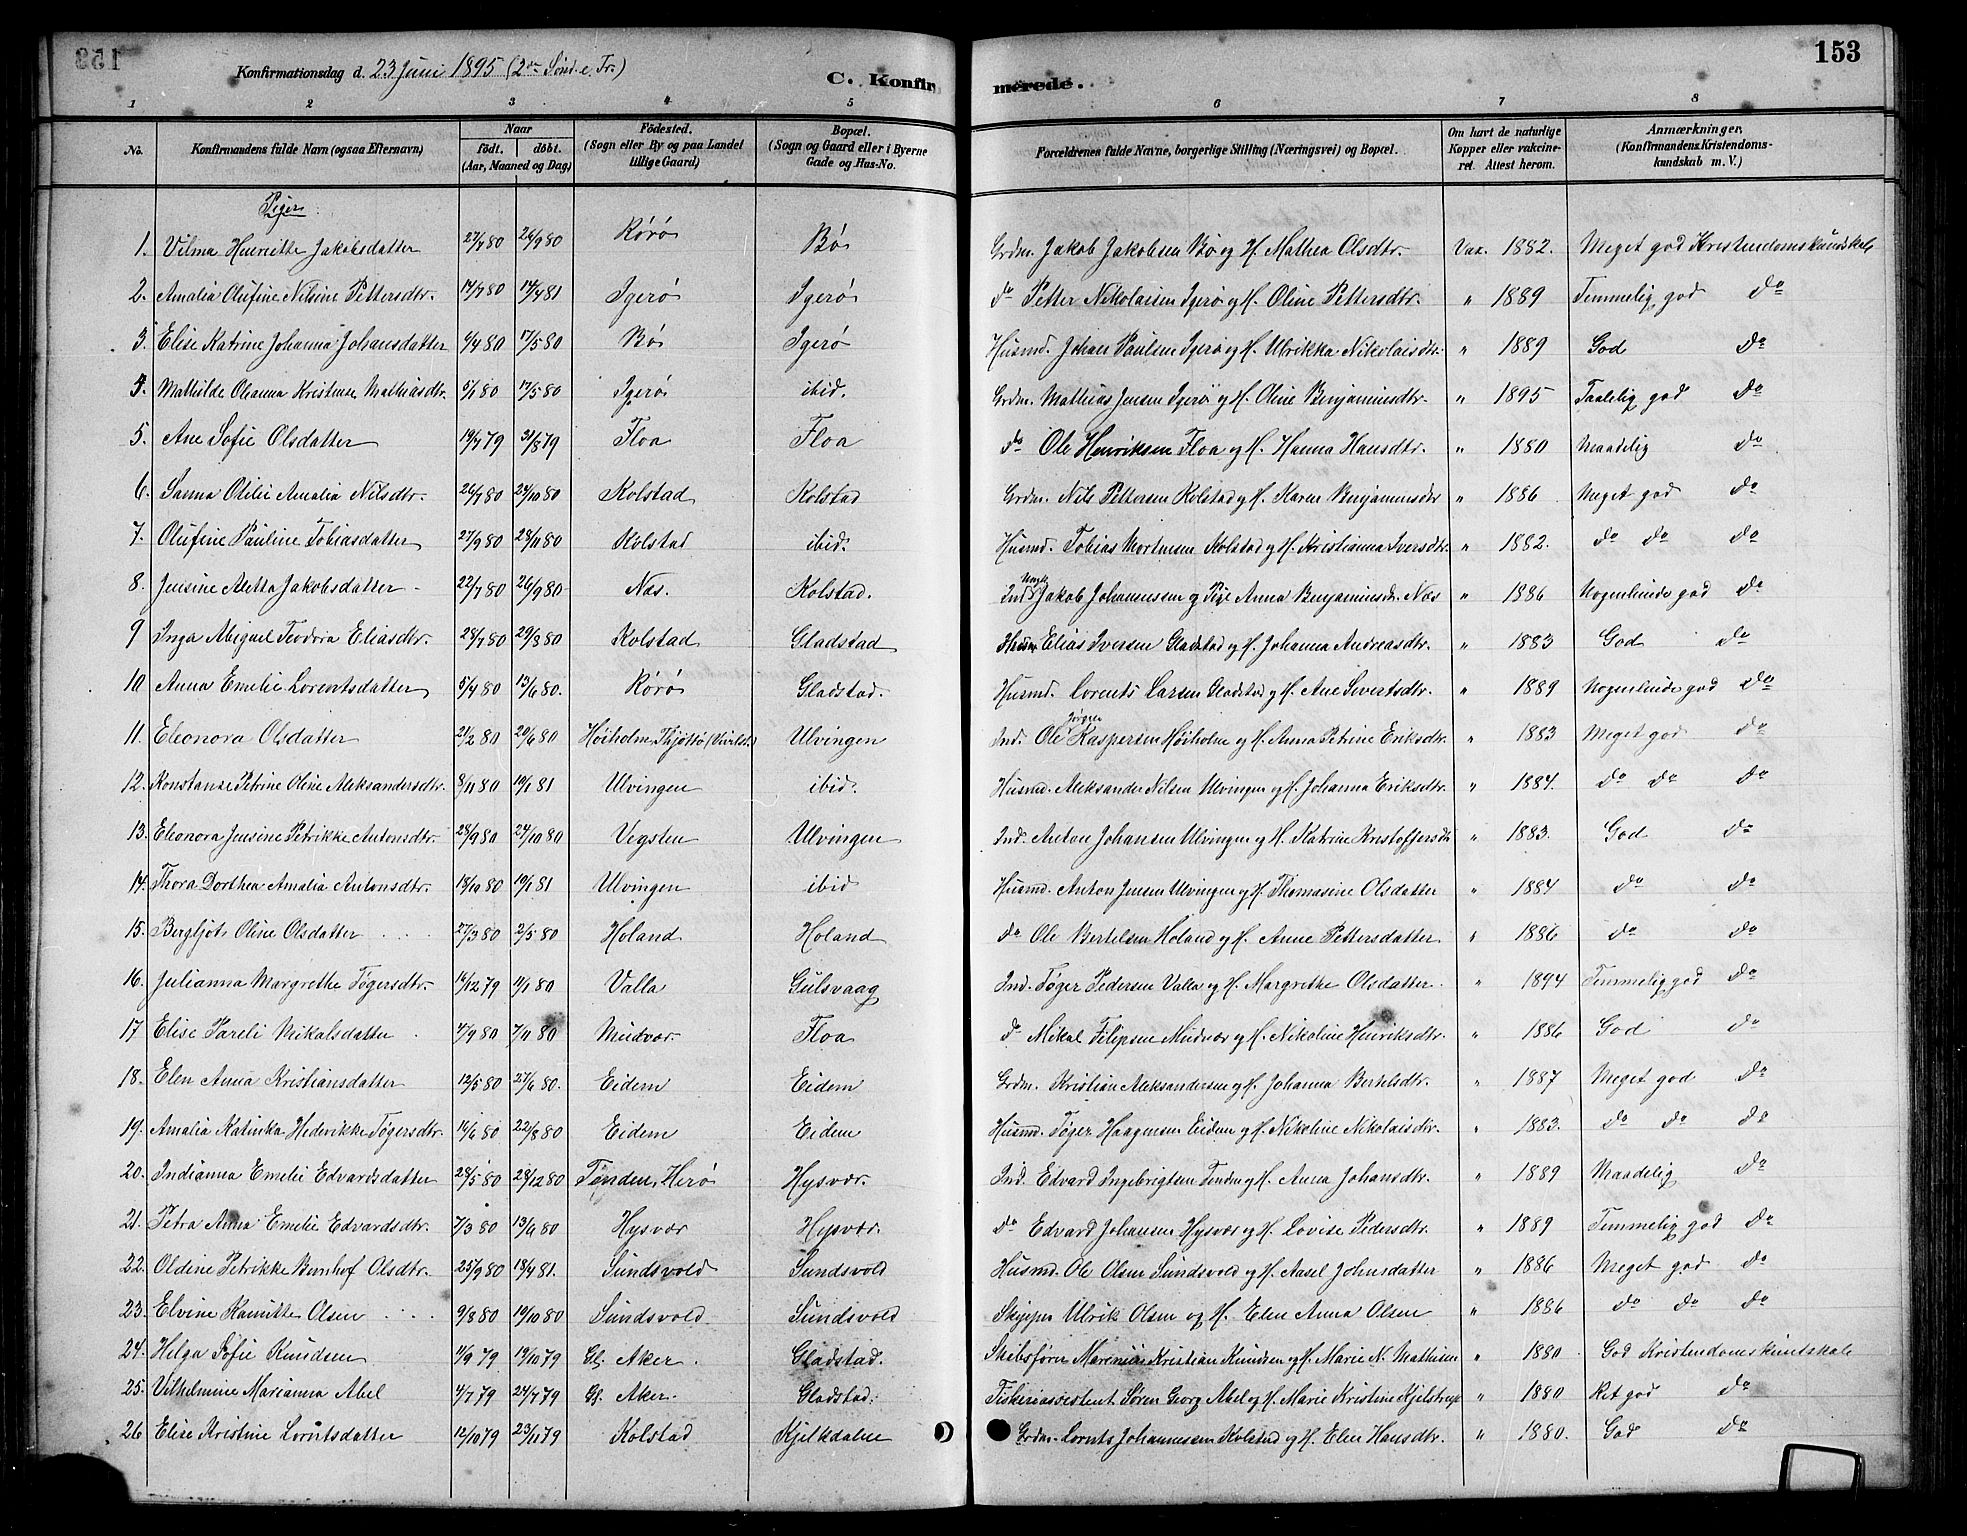 153
Konfirmationsdag d. 23 Juni 1895 (2den Sønd. e. Tr.)
C. Konfirmerede.
1 2 3 4 5 6 7 8
No. Konfirmandens fulde Navn (ogsaa Efternavn) Naar født. døbt. (Aar, Maaned og Dag) Fødested. (Sogn eller By og paa Landet tillige Gaard) Bopæl. (Sogn og Gaard eller i Byerne Gade og Hus-No. Forældrenes fulde Navne, borgerlige Stilling (Næringsvei) og Bopæl. Om havt de naturlige Kopper eller vakcineret. Attest herom. Anmærkninger. (Konfirmandens Kristendomskundskab m. V.)
Piger
1. Vilma Henriette Jakobsdatter 27/7 80 26/9 80 Rørø Bø Grdm. Jakob Jakobsen Bø og H. Mathea Olsdtr. Vax. 1882. Meget god Kristendomskundskab
2. Amalia Olufine Nilsine Pettersdtr. 14/7 80 17/4 81 Igerø Igerø do Petter Nikolaisen Igerø og H. Oline Pettersdtr. " 1889 Temmelig god do
3. Elise Katrine Johanna Johansdatter 9/4 80 17/5 80 Bø Igerø Husmd. Johan Paulsen Igerø og H. Ulrikka Nikolaisdtr. " 1889 God do
4. Mathilde Oleanna Kristense Mathiasdtr. 5/1 80 17/5 80 Igerø ibid. Grdm. Mathias Jensen Igerø og H. Oline Benjaminsdtr. " 1895 Taalelig god do
5. Ane Sofie Olsdatter 19/7 79 31/8 79 Floa Floa do Ole Henriksen Floa og H. Hanna Hansdtr. " 1880 Maadelig do
6. Sanna Otilie Amalia Nilsdtr. 26/7 80 24/10 80 Kolstad Kolstad Grdm. Nils Pettersen Kolstad og H. Karen Benjaminsdtr " 1886 Meget god do
7. Olufine Pauline Tobiasdatter 27/9 80 28/11 80 Kolstad ibid. Husmd. Tobias Mortensen Kolstad og H. Kristianna Iversdtr. " 1882. do do do
8. Jensine Aletta Jakobsdatter 22/7 80 26/9 80 Næs. Kolstad. Ungk. Jakob Johannesen og Pige Anna Benjaminsdtr. Næs " 1886 Nogenlunde god do
9 Inga Abigael Teodora Eliasdtr. 28/7 80 29/8 80 Kolstad Gladstad Husm Elias Iversen Gladstad og H. Johanna Andreasdtr. " 1883 God do
10 Anna Emelie Lorentsdatter 5/4 80 13/6 80. Rørø Gladstad. Husmd. Lorents Larsen Gladstad og H. Ane Sivertsdtr. " 1889 Nogenlunde god do
11. Eleonora Olsdatter 21/2 80 20/6 80 Høiholm, Thjøttø Ulvingen Ind. Ole Jørgen Kaspersen Høiholm og H. Anna Petrine Eriksdtr. " 1883 Meget god do
12. Konstanse Petrine Oline Aleksandersdtr. 8/11 80 19/1 81 Ulvingen ibid. Husmd. Aleksander Nilsen Ulvingen og H. Johanna Eriksdtr. " 1884. do do do
13. Eleonora Jensine Petrikke Antonsdtr. 28/9 80 24/10 80 Vegsten Ulvingen Ind. Anton Johansen Ulvingen og H. Katrine Kristoffersdtr " 1883. God do
14. Thora Dorthea Amalia Antonsdtr. 18/10 80 19/1 81 Ulvingen ibid Husmd. Anton Jensen Ulvingen og H. Thomasine Olsdatter " 1884 do do
15. Bergljot Oline Olsdatter 27/3 80 2/5 80 Holand Holand do Ole Bertelsen Holand og H. Anne Pettersdatter " 1886 do do
16. Julianna Margrethe Tøgersdtr. 16/12 79 11/1 80 Valla Gulsvaag Ind. Tøger Pedersen Valla og H. Margrethe Olsdatter. " 1894 Temmelig god do
17 Elise Pareli Mikalsdatter 4/9 80 7/11 80 Mudvær. Floa do Mikal Filipsen Mudvær og H. Nikoline Henriksdtr. " 1886 God do
18. Elen Anna Kristiansdatter 12/5 80 27/6 80. Eidem Eidem Grdm. Kristian Aleksandersen og H. Johanna Bertelsdtr. " 1887 Meget god do
19. Amalia Katinka Hedevikke Tøgersdtr. 16/6 80 22/8 80 Eidem Eidem Husmd. Tøger Haagensen Eidem og H. Nikoline Nikolaisdtr. " 1883. do do do
20. Indianna Emelie Edvardsdatter 28/5 80 28/12 80 Tenden, Herø Hysvær. Ind. Edvard Ingebrigtsen Tenden og H. Anna Johansdtr. " 1889 Maadelig do
21. Petra Anna Emelie Edvardsdtr. 7/3 80 13/6 80 Hysvær Hysvær. do Edvard Johansen Hysvær og H. Lovise Pedersdtr. " 1889 Temmelig god do
22. Oldine Petrikke Bernhof Olsdtr. 25/9 80 18/4 81. Sundsvold Sundsvold Husmd. Ole Olsen Sundsvold og H. Aasel Johnsdatter " 1886 Meget god do
23. Elvine Kamitte Olsen 9/8 80 19/10 80 Sundsvold Sundsvold Skipper Ulrik Olsen og H. Elen Anna Olsen " 1886 do do do
24. Helga Sofie Knudsen 11/9 79 19/10 79 Gl. Aker. Gladstad. Skibsfører Marenius Kristian Knudsen og H. Marie N. Mathisen " 1880. God Kristendomskundskab
25. Vilhelmine Marianna Abel 4/7 79 24/7 79 Gl. Aker. Gladstad. Fiskeriassistent Søren Georg Abel og H. Marie Kristine Kjelstrup " 1880 Ret god do
26 Elise Kristine Lorntsdatter 12/10 79 23/11 79 Kolstad Kjelkdalen Grdm. Lornts Johannessen Kolstad og H. Elen Hansdtr. " 1880. God do